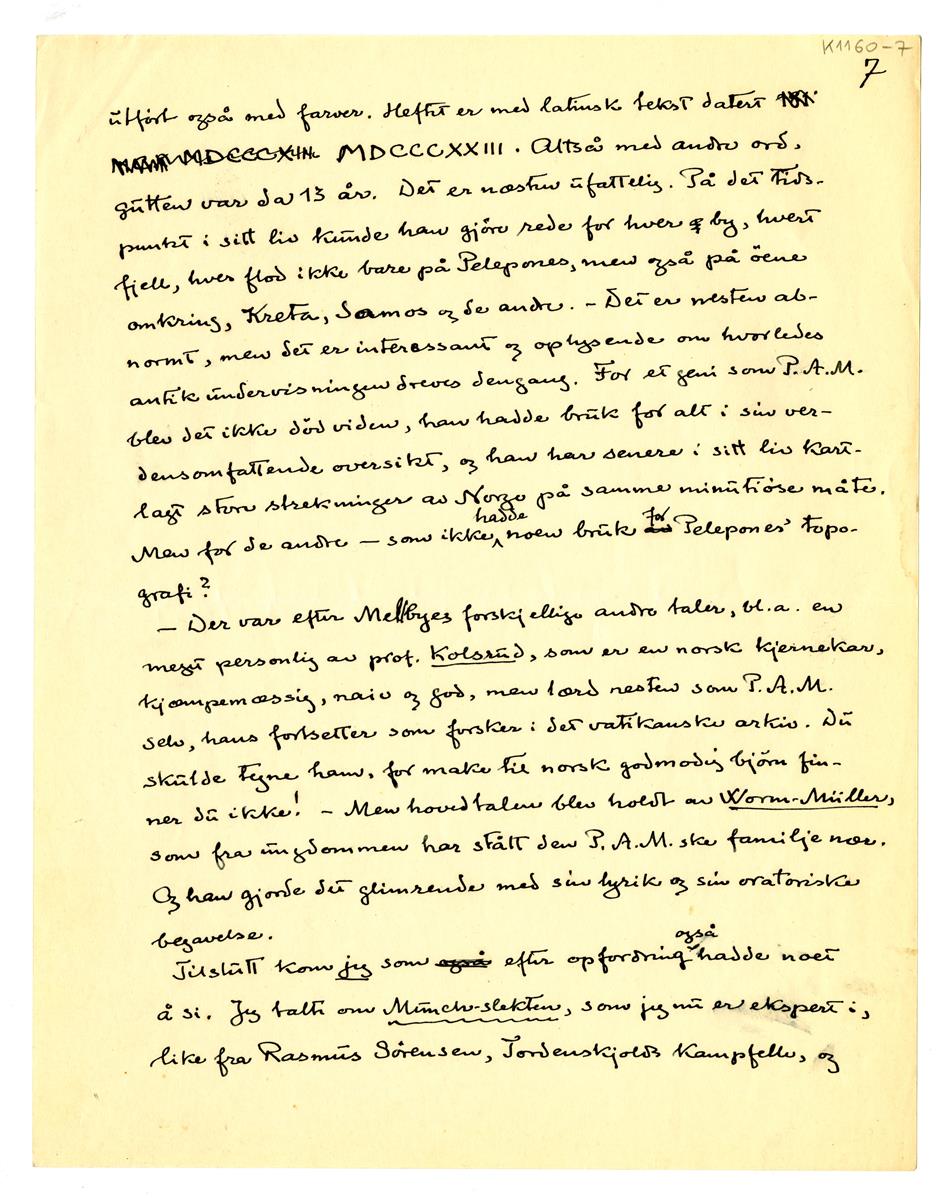 K1160-7
7
utført også med farver. Heftet er med latinsk tekst datert
MDCCCXIII. MDCCCXXIII. Altså med andre ord,
gutten var da 13 år. Det er næsten ufattelig. På det tids-
punkt i sitt liv kunde han gjöre rede for hver by, hvert
fjell, hver flod ikke bare på Pelepones, men også på öene
omkring, Kreta, Samos og de andre. – Det er nesten ab-
normt, men det er interessant og oplysende om hvorledes
antik undervisningen dreves dengang. For et geni som P.A.M.
blev det ikke död viden, han hadde bruk for alt i sin ver-
densomfattende oversikt, og han har senere i sitt liv kart-
lagt store strekninger av Norge på samme minutiöse måte.
Men for de andre – som ikke hadde noen bruk for Pelepones' topo-
grafi?
– Der var efter Mellbyes forskjellige andre taler, bl.a. en
meget personlig av prof. Kolsrud, som er en norsk kjernekar,
kjæmpemæssig, naiv og god, men lærd nesten som P.A.M.
selv, hans fortsetter som forsker i det vatikanske arkiv. Du
skulde tegne ham, for make til norsk godmodig björn fin-
ner du ikke! – Men hovedtalen blev holdt av Worm-Müller,
som fra ungdommen har stått den P.A.M.ske familje nær.
Og han gjorde det glimrende med sin lyrik og sin oratoriske
begavelse.
Tilslutt kom jeg som også efter opfordring også hadde noet
å si. Jeg talte om Munch-slekten, som jeg nu er ekspert i,
like fra Rasmus Sörensen, Tordenskjolds kampfelle, og